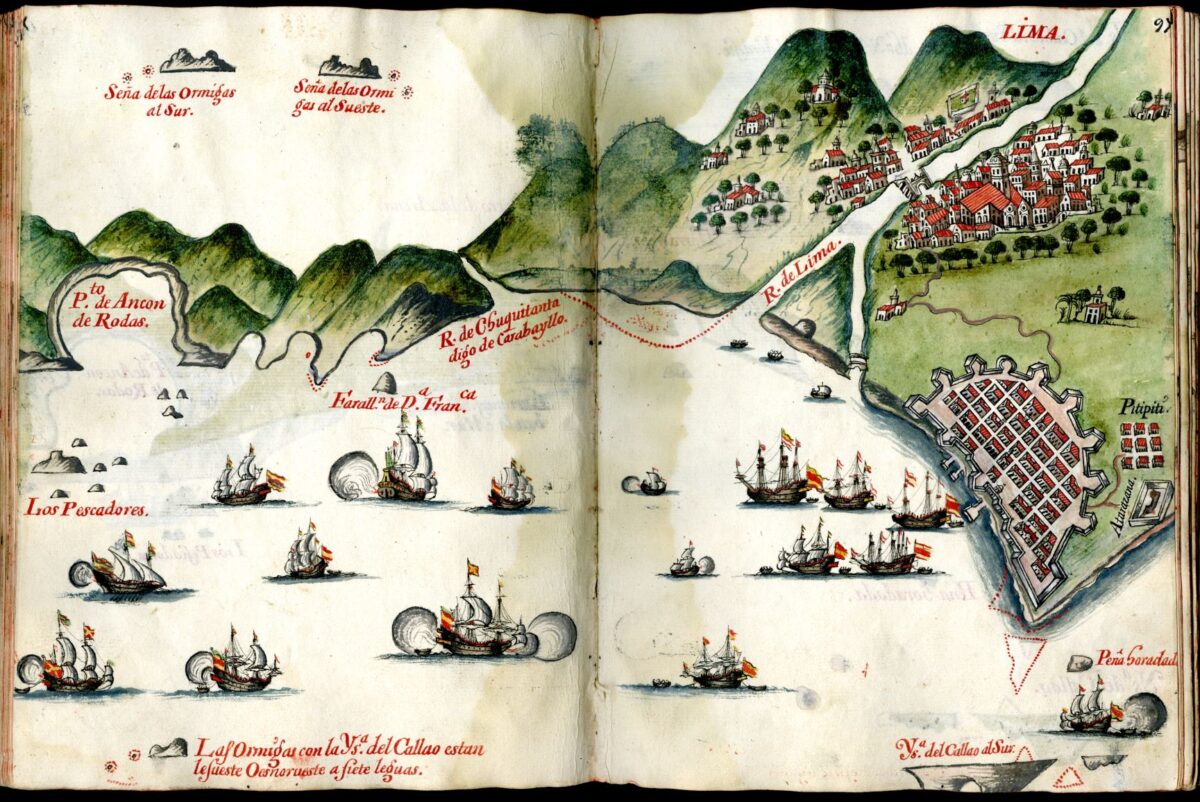 97
LIMA.
Seña de las Ormigas
al Sur.
Seña de las Ormi
gas al Sueste.
P.to de Ancon
de Rodas.
R. de Chuquitanta
digo de Carabayllo.
R. de Lima.
Farall.n de D.a Fran.ca
Pitipiti.
Atarazana.
Los Pescadores.
Peña horadad
Las Ormigas con la Ys.a del Callao estan
lesueste Oesnorueste a siete leguas.
Ys.a del Callao al Sur.